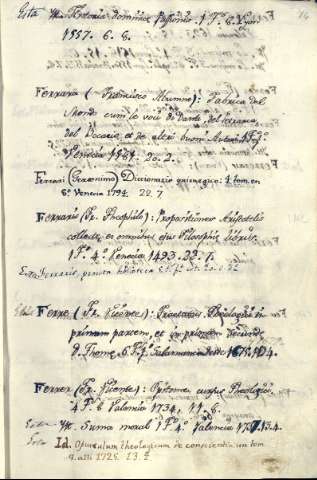 14
Esta Yt. Historia dominicæ Passionis. 1. Tº. 8. Lyon
1557. 6. 8.
Ferrara (Francisco Alunno): Fabrica del
Mondo cum le voci de Dante, del Petrarca,
del Bocacio, et de altri buoni Autori. 1. Tº.
Venecia 1557. 20. 2.
Ferrari (Geronimo) Diccionario 1 tom. en
8º Venecia 1794. 22. 7
Ferrariis (Fr. Theophilo): Propositiones Aristotelis
collectæ ex omnibus ejus Philosophiæ libris.
1. Tº. 4º Venecia 1493. 22. 7.
Esta Ferraris, prompta bibliotheca
Esta Ferre (Fr. Vicente): Tractatus Theologici in
primam partem, et in primam Secundæ
D. Thomæ 6. Tº. fº Salamanca desde 1675. 12. 4.
Ferrer (Fr. Vicente): Epitome cursus Theologici
4. Tº. 8. Valencia 1734. 11. 8.
Esta Yt. Suma moral 1. Tº. 4º Valencia 1737. 13. 4.
Esta Id. Opusculum theologicum de conscientia un tom.
1725. 13. 2.